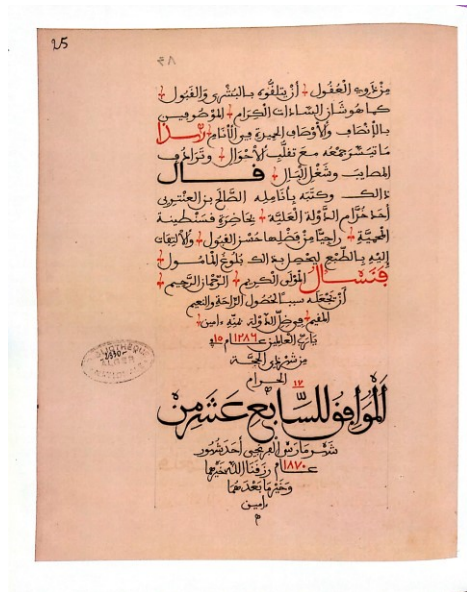 25
٣٨
من ذروه العفول أن يتلفوه بالبشرى والفبول
كما هو شان السادات الكرام الموصوفين
بالأنصاف والأوصاف الحميدة في الأنام هذا
ما تيسر جمعه مع تفلب الأحوال وترادف
المصايب وشغل البال فال
ذالك وكتبه بأنامله الصالح بن العنتري
أحد خدام الدولة العلية بحاضرة فسنطينة
المحمية راجيا من فضلها حسن الفبول والألتفات
إليه بالطبع ليحصل بذالك بلوغ المأمول
فنسأل المولى الكريم الرحمان الرحيم
أن يجعله سببا لحصول الراحة والنعيم
المفيم الدولة بمنه ءامين
يارب العالمين ١٢٨٦ عام ١٥
من شهر ذي الحجة
الحرام
١٧
الموافق للسابع عشر من
شهر مارس الفرنجي أحد شهور
عام ١٨٧٠ رزفنا الله خيرها
وخير ما بعدهما
ءامين
م
ALGER